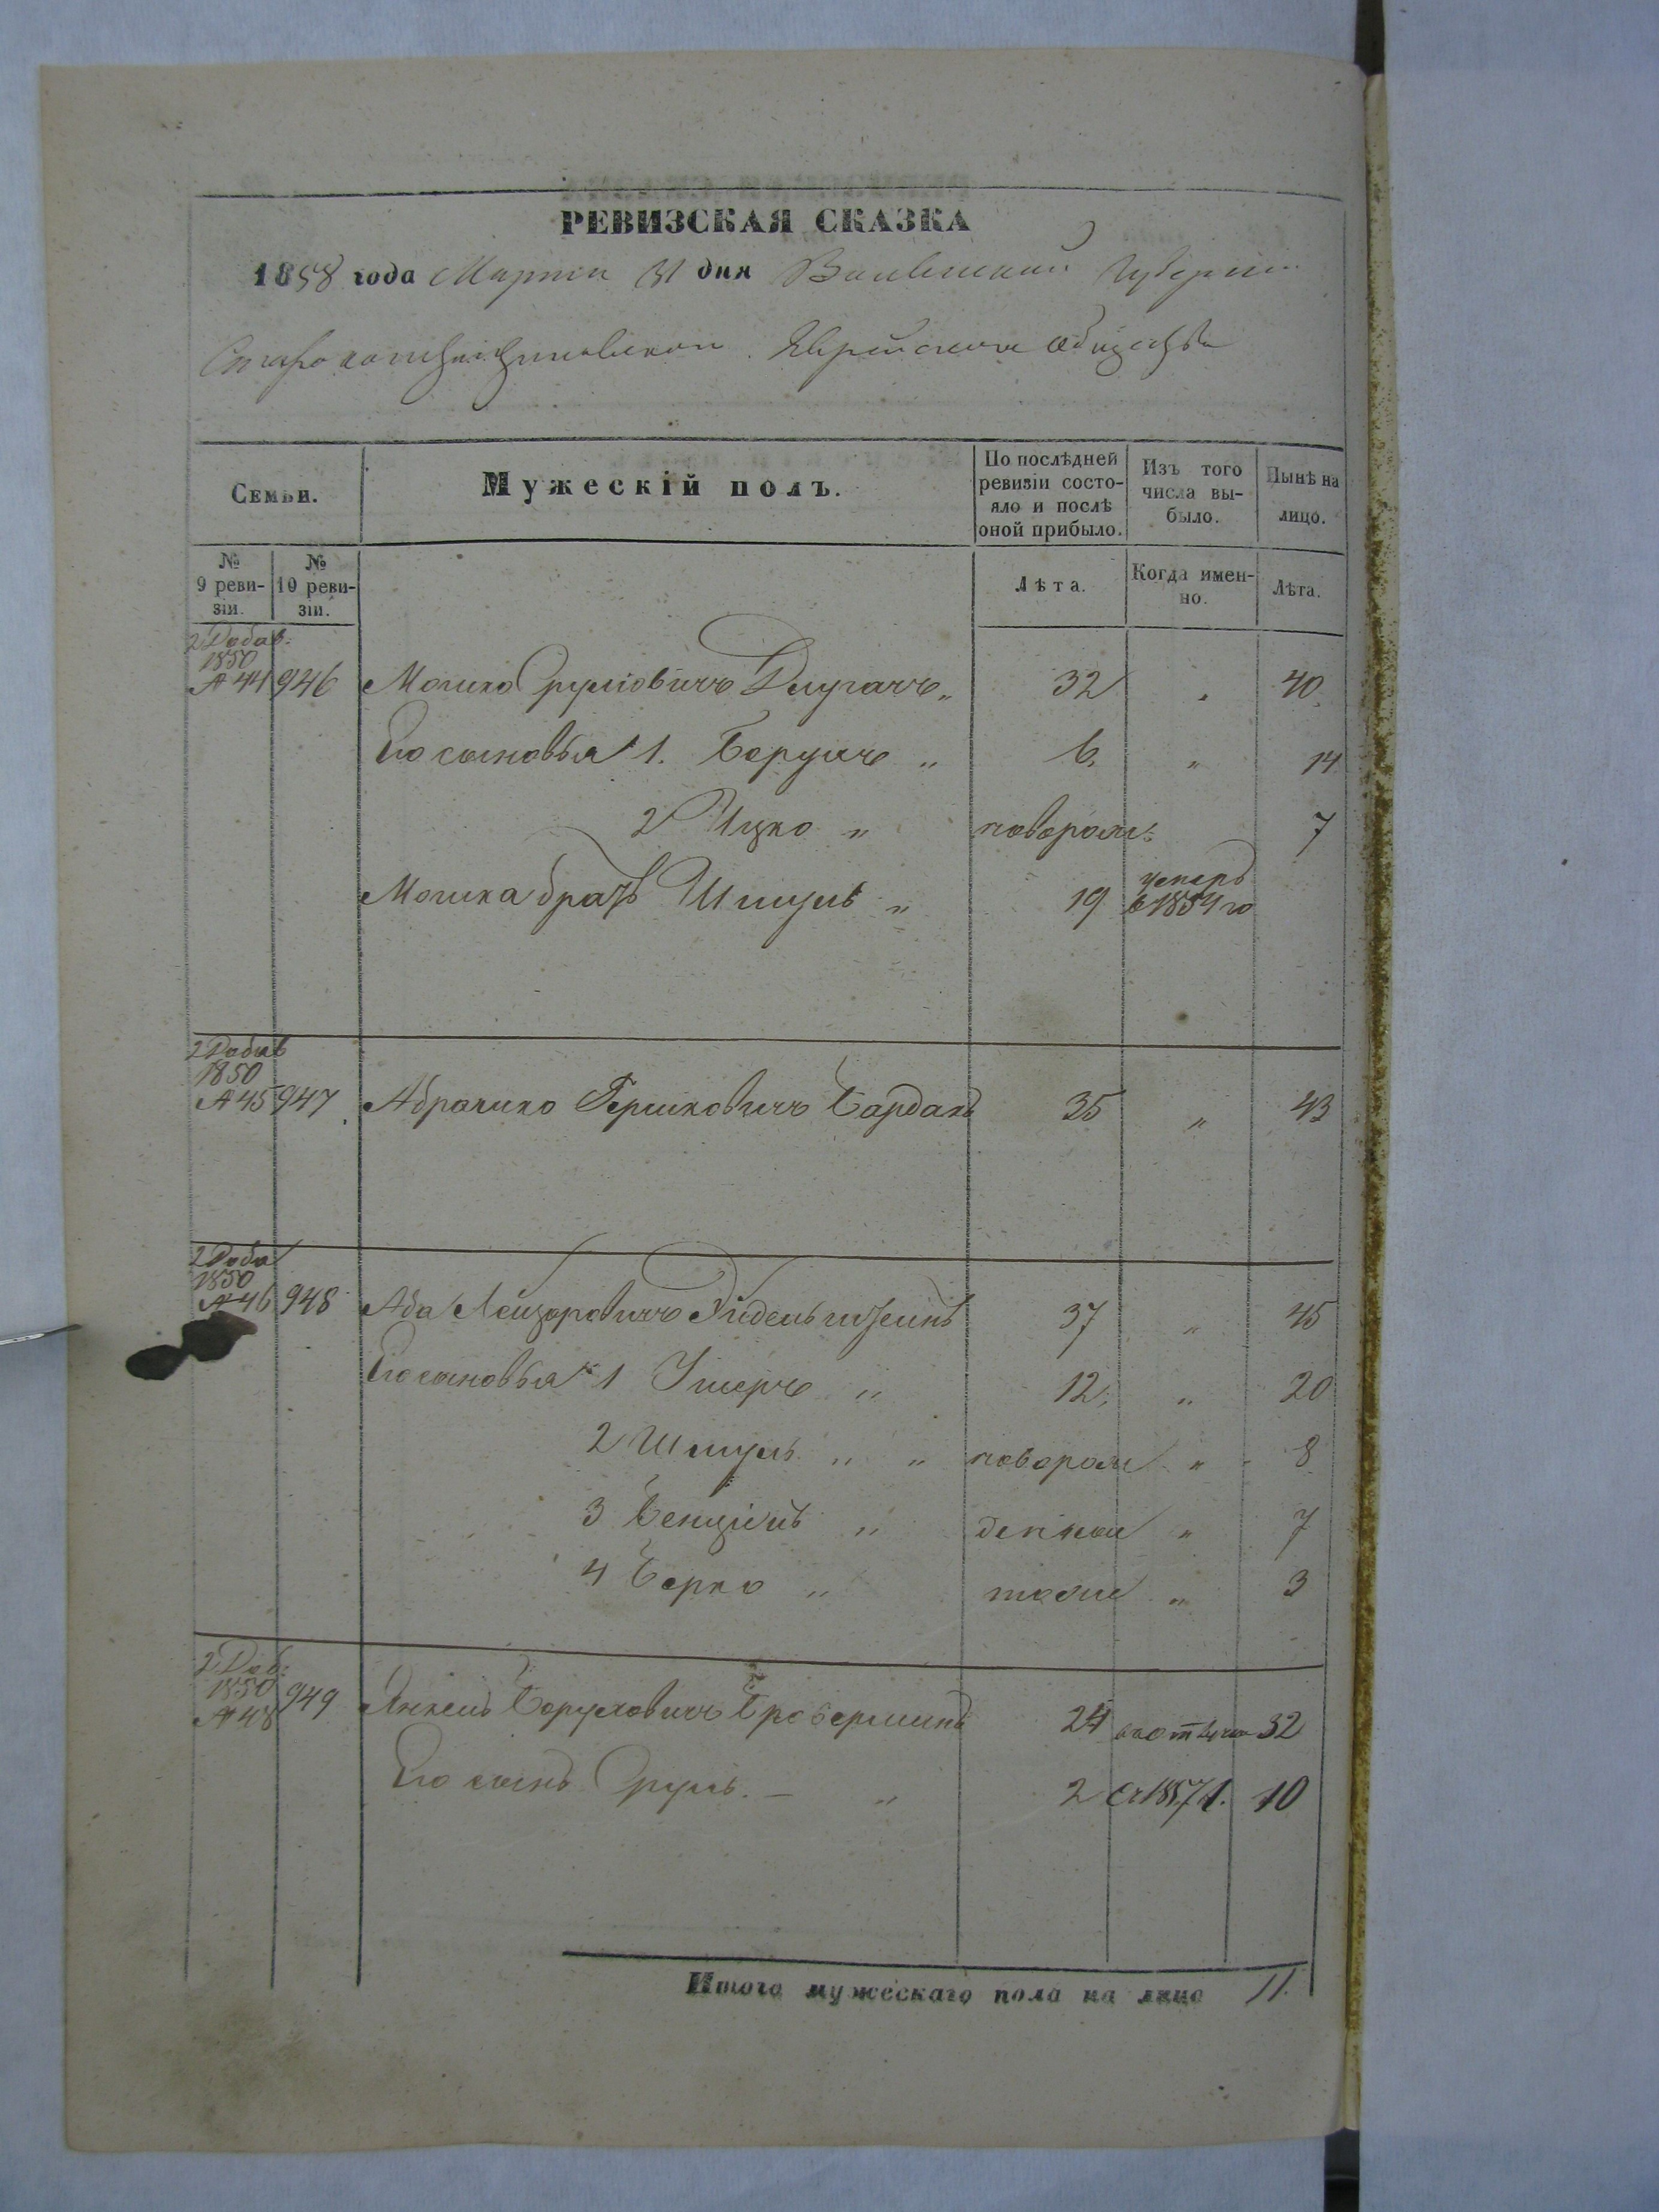 РЕВИЗСКАЯ СКАЗКА
1858 года Марта 31 дня Волынской Губернии
Староконстантиновскаго Еврейскаго Общества
Семьи.
Мужескій полъ.
По послѣдней ревизіи состояло и послѣ оной прибыло.
Изъ того числа выбыло.
Нынѣ на лицо.
№ 9 ревизіи.
№ 10 ревизіи.
Лѣта.
Когда именно.
Лѣта.
2 Добав:
1850
№ 44 946 Мошко Сруліовичъ Длугачъ „ 32 „ 40
Его сыновья 1. Борухъ „ 6. „ 14
2 Ицко „ новорож: 7
Мошка братъ Шмуль „ 19 умеръ в 1854 го
2 Добав
1850
№ 45 947 Абрамко Гершковичъ Бордахъ 35 „ 43
2 Доба
1850
№ 46 948 Аба Лейзоровичъ 37 „ 45
Его сыновья 1 Ушеръ „ 12. „ 20
2 Шмуль „ „ новорож „ 8
3 Бенціонъ „ „ 7
4 Берко „ тоже „ 3
2 Доб:
1850
№ 48 949 Янкель Боруховичъ 24 32
Его сынъ Сруль. – „ 2 10
Итого мужескаго пола на лицо 11.